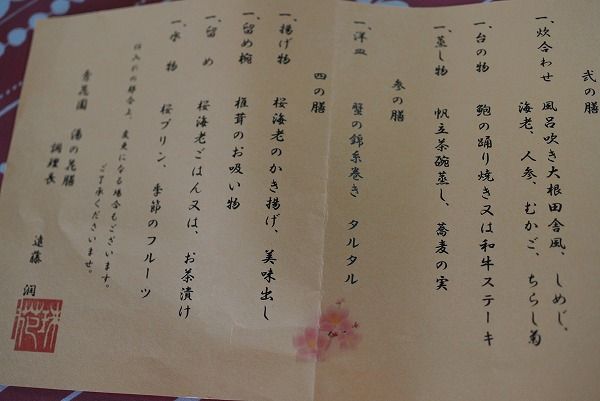 弐の膳
一、炊合わせ　風呂吹き大根田舎風、しめじ、
海老、人参、むかご、ちらし菊
一、台の物　鮑の踊り焼き又は和牛ステーキ
一、蒸し物　帆立茶碗蒸し、蕎麦の実
参の膳
一、洋皿　蟹の錦糸巻き　タルタル
四の膳
一、揚げ物　桜海老のかき揚げ、美味出し
一、留め椀　椎茸のお吸い物
一、留め　桜海老ごはん又は、お茶漬け
一、水物　桜プリン、季節のフルーツ
仕入れの都合上、変更になる場合もございます。
ご了承くださいませ。
湯の花膳
調理長
遠藤　潤